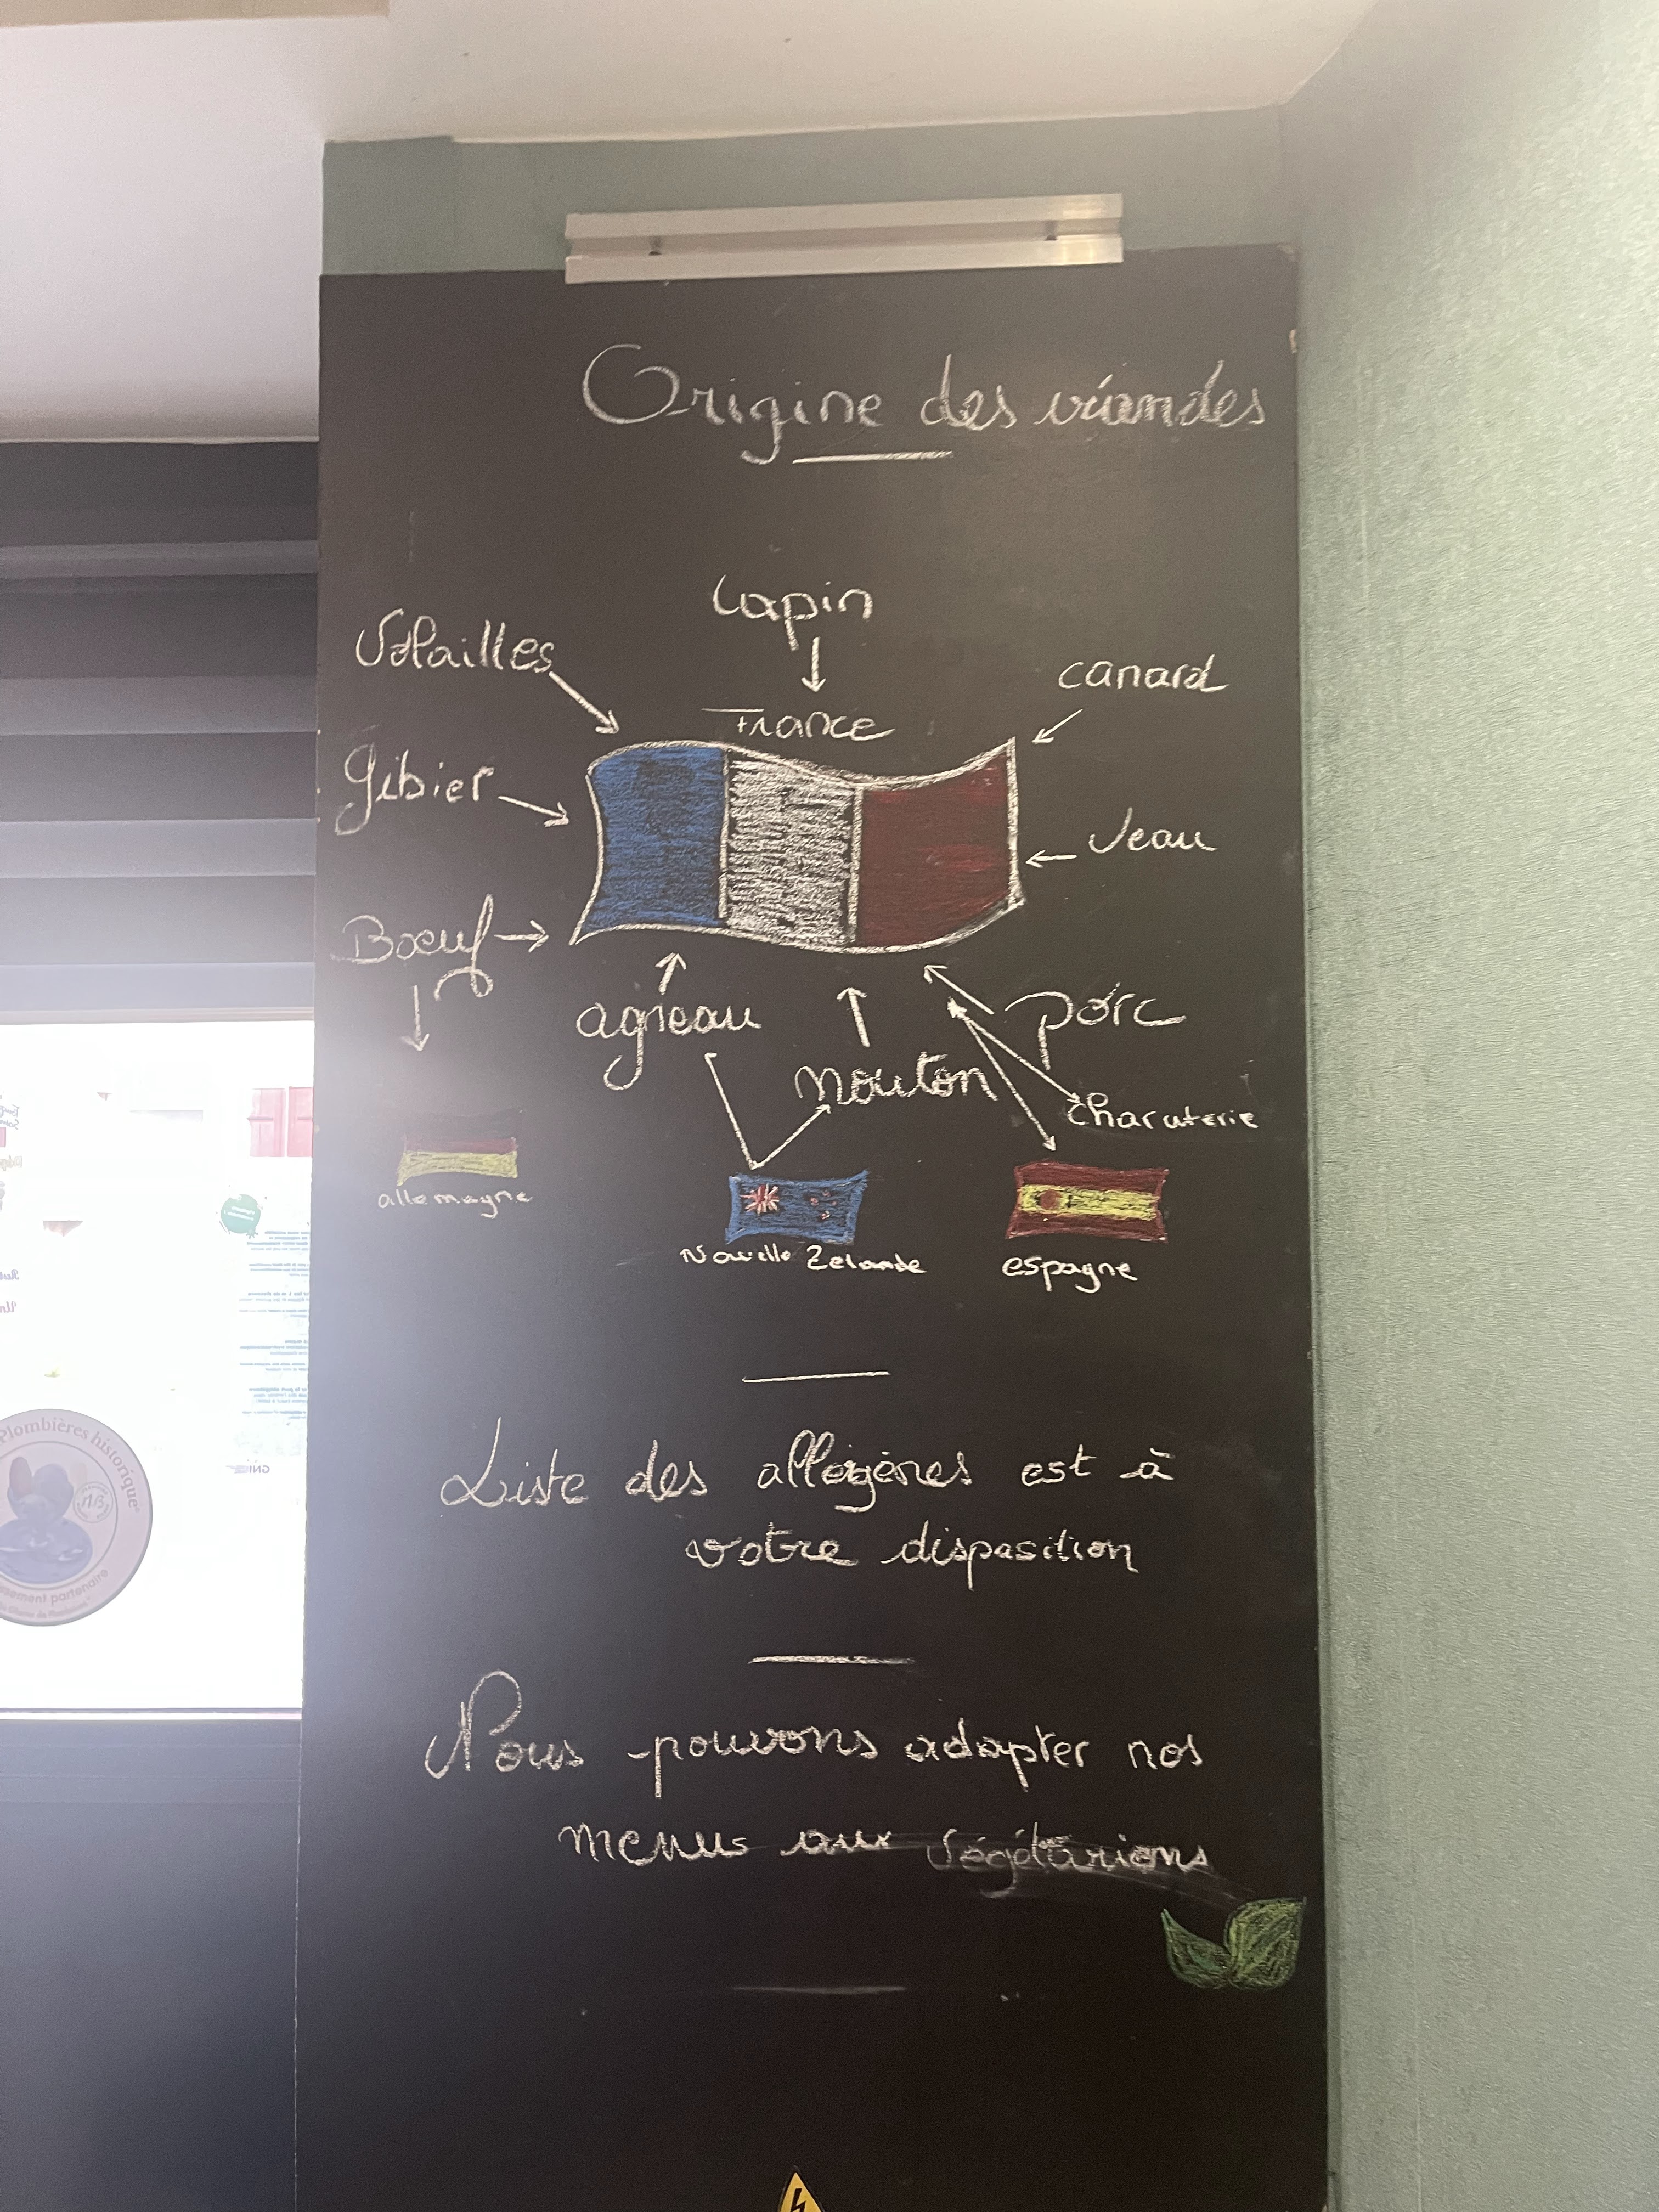 Origine des viandes
Lapin
Volailles
canard
France
Gibier
Veau
Boeuf
agneau
porc
mouton
charcuterie
allemagne
Nouvelle Zelande
espagne
Liste des allergènes est à
votre disposition
Nous pouvons adapter nos
menus aux végétariens
Plombières historique
partenaire